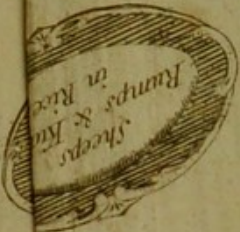 Sheeps
Rumps & Kid
in Rice